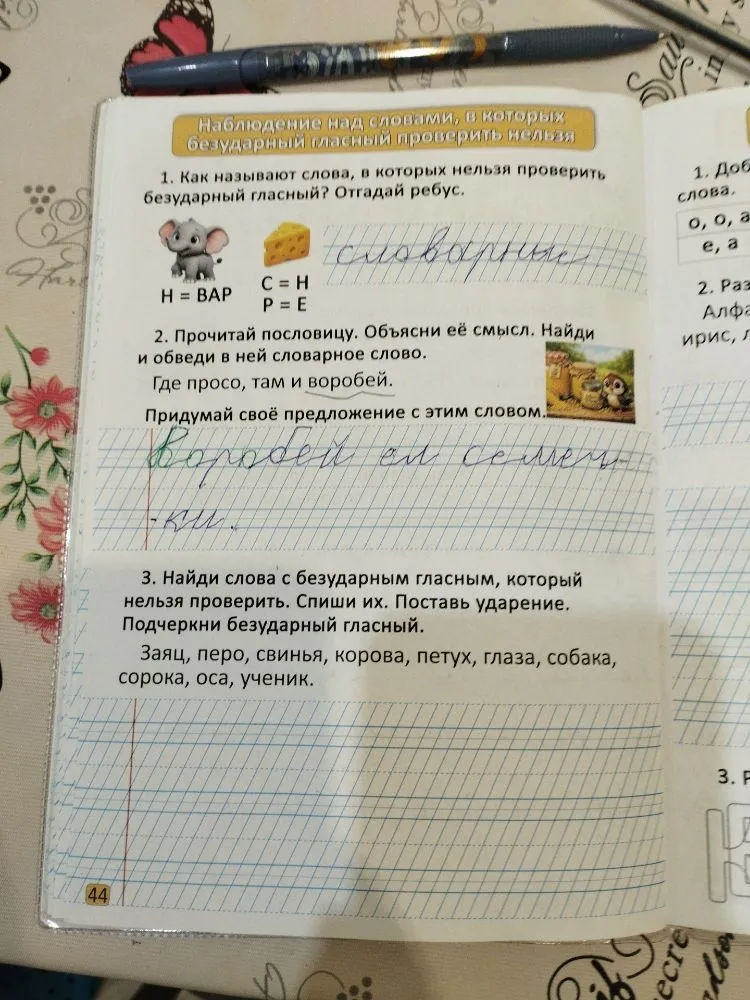 Наблюдение над словами, в которых
безударный гласный проверить нельзя
1. Как называют слова, в которых нельзя проверить
безударный гласный? Отгадай ребус.
Н = ВАР
С = Н
Р = Е
словарные
2. Прочитай пословицу. Объясни её смысл. Найди
и обведи в ней словарное слово.
Где просо, там и воробей.
Придумай своё предложение с этим словом.
Воробей ел семеч-
-ки.
3. Найди слова с безударным гласным, который
нельзя проверить. Спиши их. Поставь ударение.
Подчеркни безударный гласный.
Заяц, перо, свинья, корова, петух, глаза, собака,
сорока, оса, ученик.
44
1. Доб
слова.
о, о, а
е, а
2. Раз
Алфа
ирис, л
3. Р